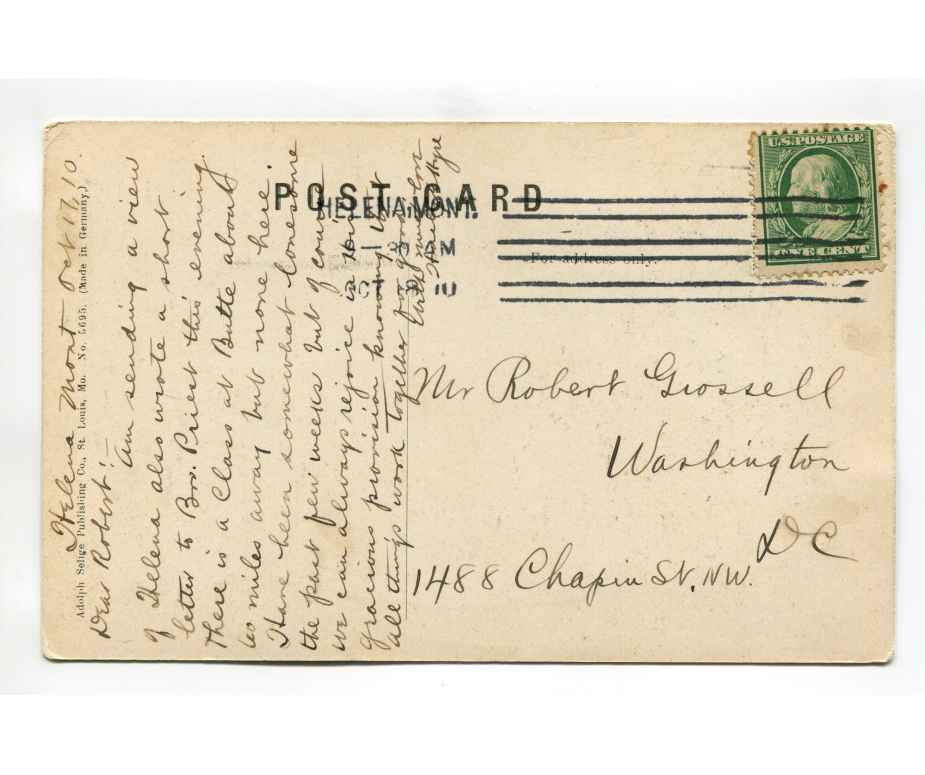 POST CARD
HELENA, MONT.
AM
10
For address only.
U.S. POSTAGE
Adolph Selige Publishing Co., St. Louis, Mo. No. 5695. (Made in Germany.)
Helena Mont Oct 17, 10.
Dear Robert! –
Am sending a view
of Helena also wrote a short
letter to Bro. Priest this evening.
There is a Class at Butte about
miles away but none here.
Have been somewhat lonesome
the past few weeks but of course
we can always rejoice in
gracious provision knowing that
all things work together for good
with much love
Mr Robert Grossell
Washington
DC
1488 Chapin St, NW.